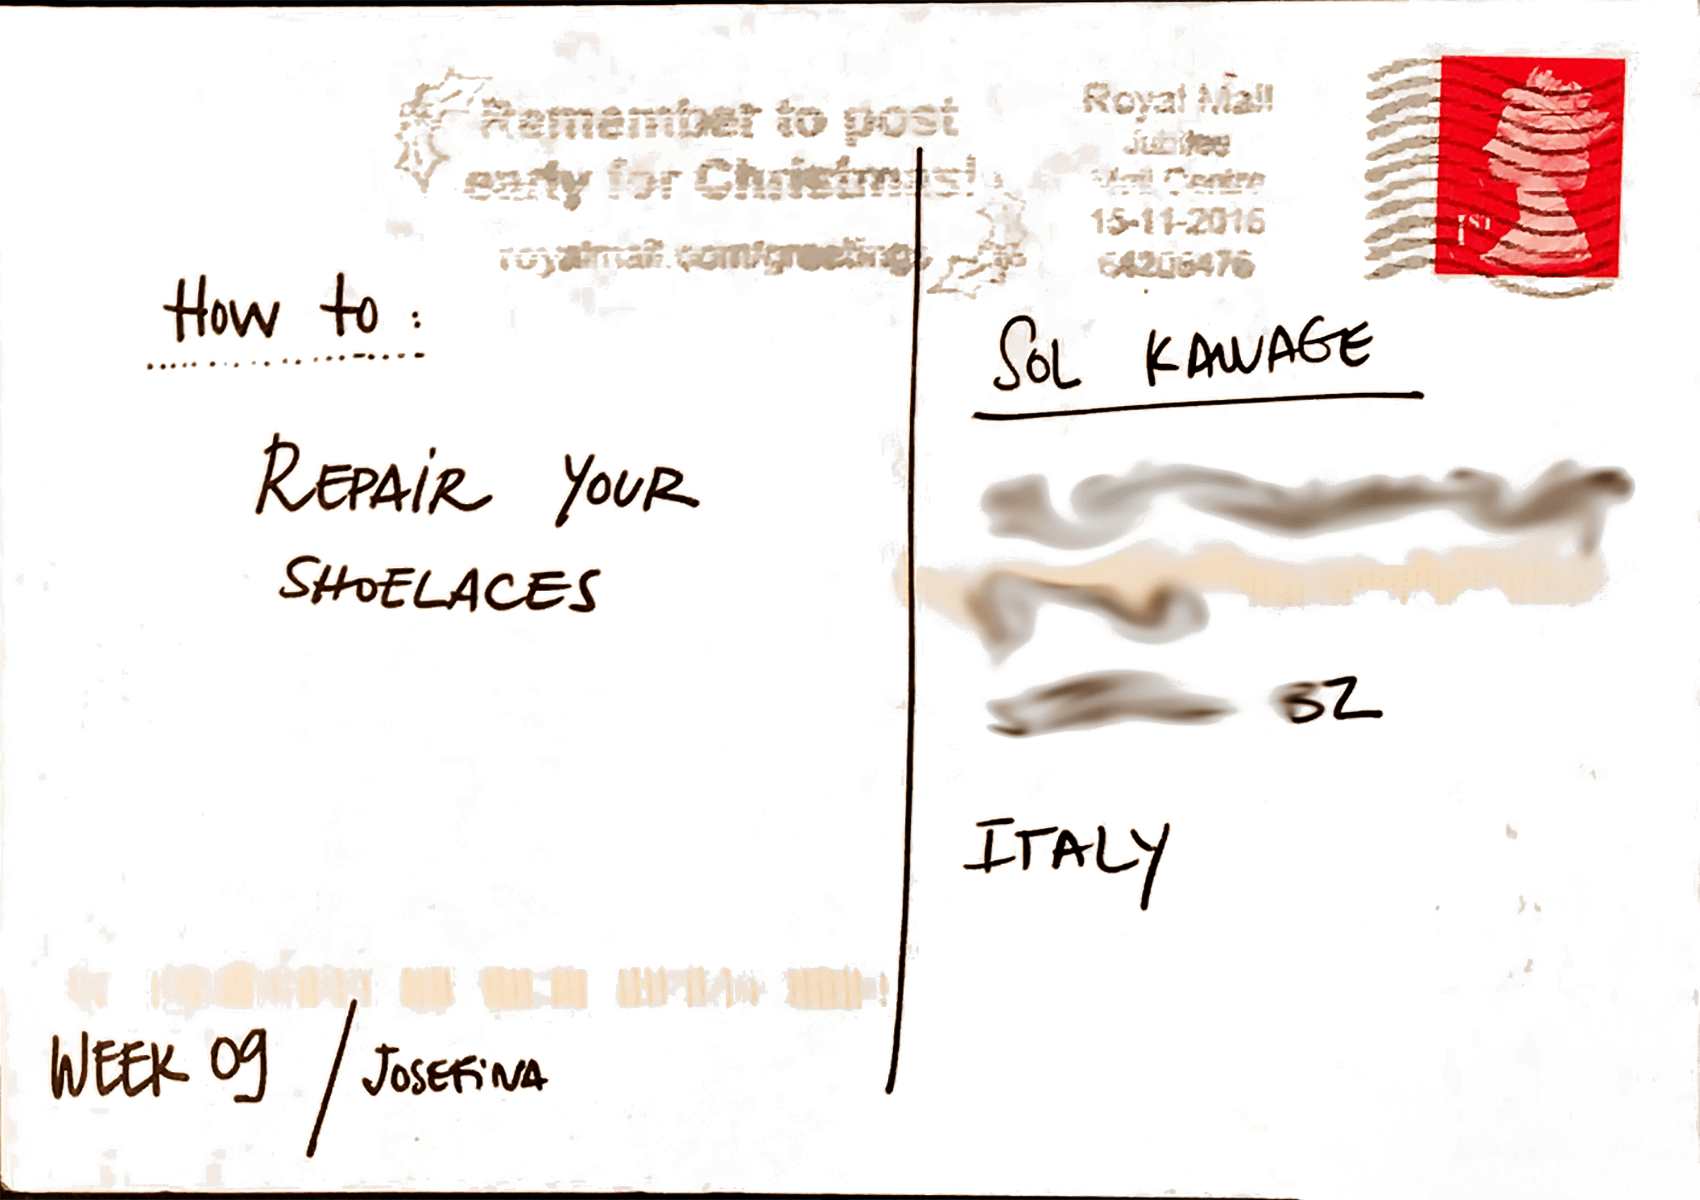 Remember to post
early for Christmas!
royalmail.com/greetings
Royal Mail
Jubilee
Mail Centre
15-11-2016
64206476
1ST
How to:
REPAIR YOUR
SHOELACES
WEEK 09 / JOSEFINA
SOL KAWAGE
BZ
ITALY